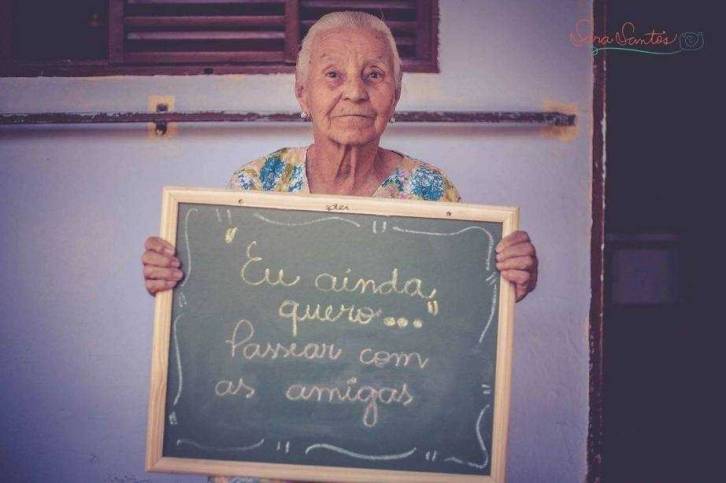 Sara Santos
"Eu ainda
quero..."
Passear com
as amigas